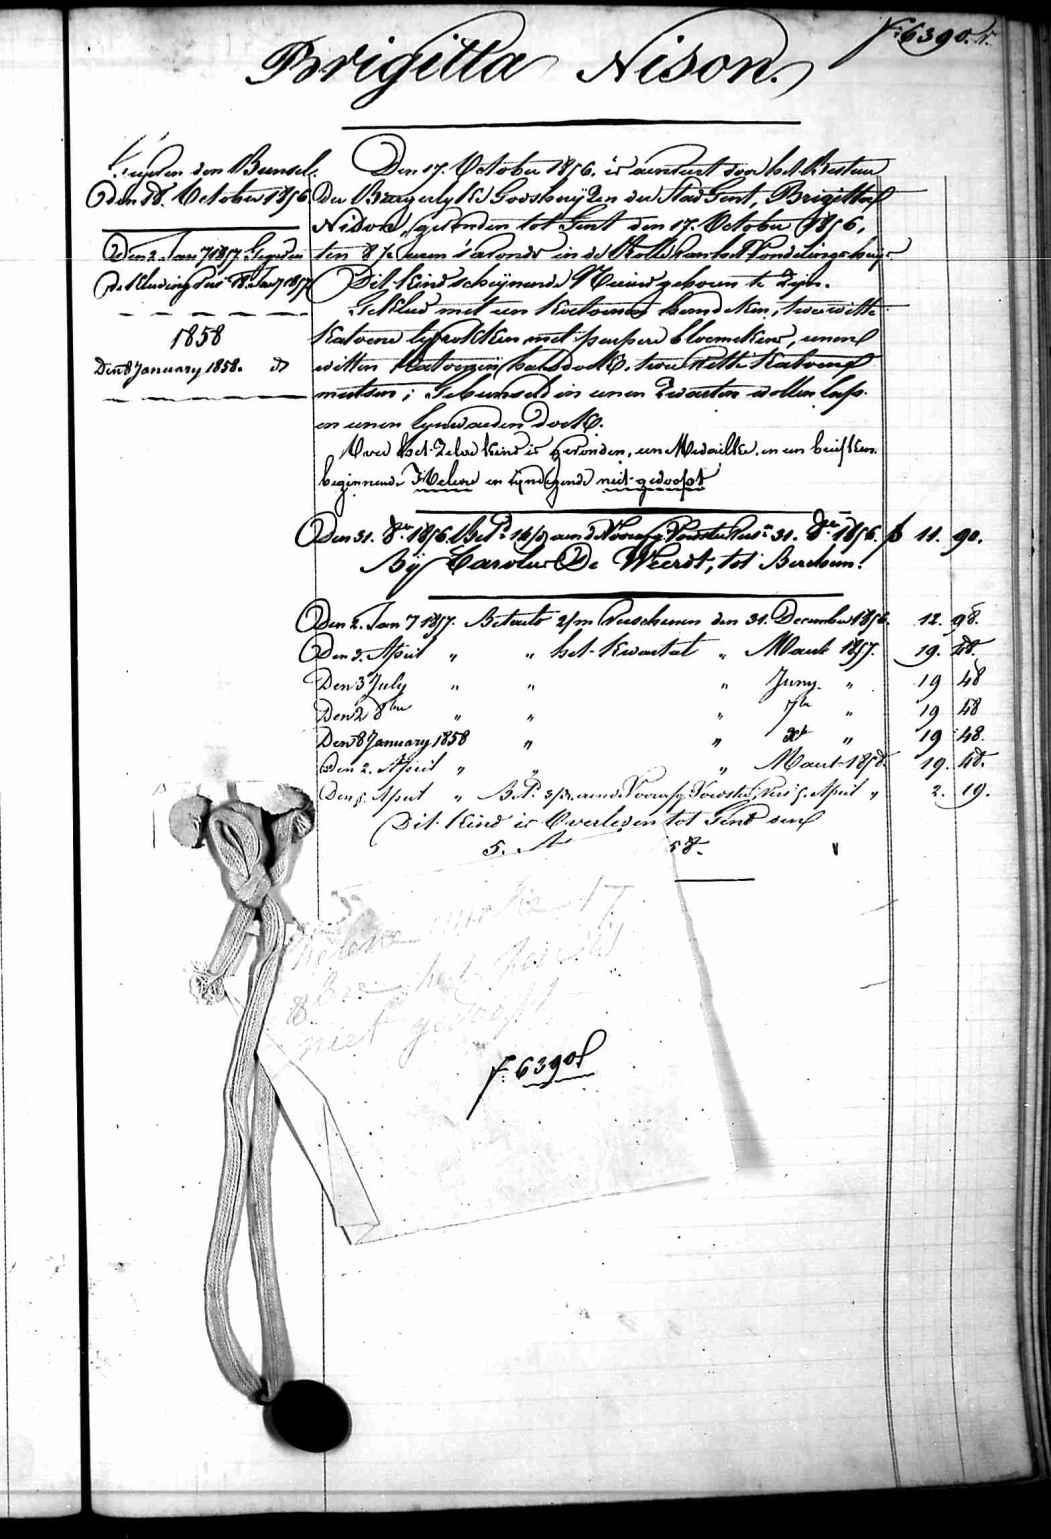 f: 6390. V.
Brigitta Nison.
den Bunsel.
den 18. October 1856.
Den 2. Jany 1857. Gegeven
de Kleeding Pas
1858
Den 8 January 1858.
Den 17. October 1856. is aenveert door het Bestuer
Der Burgerlyke Godshuyzen der Stad Gent, Brigitta
Nison, gevonden tot Gent den 17. October 1856,
ten 8 ½ uren s'avonds in de Rolle van het Vondelingshuys
Dit Kind scheynende Nieuw geboren te zijn.
Gekleed met een Katoenen hemdeken, twee witte
Katoene lyfrokken met peirpere bloemekens, eenen
witten Katoenen halsdoek, twee witte Katoene
mutsen; Gebunseld in eenen Zwarten wollen laps.
en eenen lynwaeden Doek.
Over het Zelve kind is gevonden, een Medaillke, en een briefken.
beginnende Helene en eyndigende niet gedoopt
Den 31. 8er 1856. Bet. 14/d aen de Voorsg. Voedster 31. 8er 1856. f 11. 90.
By Carolus De Weerdt, tot Berchem.
Den 2. Jany 1857. Betaelt 2/m Verschenen den 31. December 1856. 12. 98.
Den 3. April " " het Kwartael " Maert 1857. 19. 48.
Den 3 July " " " Juny. " 19 48
Den 2 8bre " " " 7bre " 19 48
Den 8 January 1858 " " Xbr " 19 48.
Den 2. April " " " Maert 1858. 19. 48.
Den 5. April " Bet. aen de Voorsg. Voedster 5. April " 2. 19.
Dit Kind is Overleden tot Gend den
5. A 58.
Helene 17
8 Bre het Kind is
niet gedoopt
f: 6390